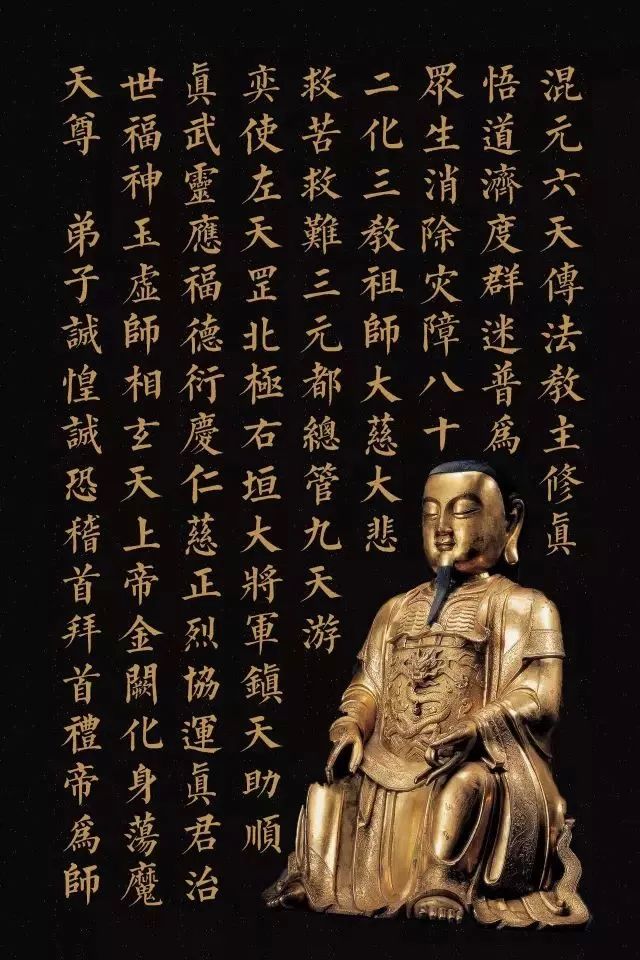 混元六天傳法教主修眞
悟道濟度群迷普爲
眾生消除灾障八十
二化三教祖師大慈大悲
救苦救難三元都總管九天游
奕使左天罡北極右垣大將軍鎮天助順
眞武靈應福德衍慶仁慈正烈協運眞君治
世福神玉虛師相玄天上帝金闕化身蕩魔
天尊　弟子誠惶誠恐稽首拜首禮帝爲師